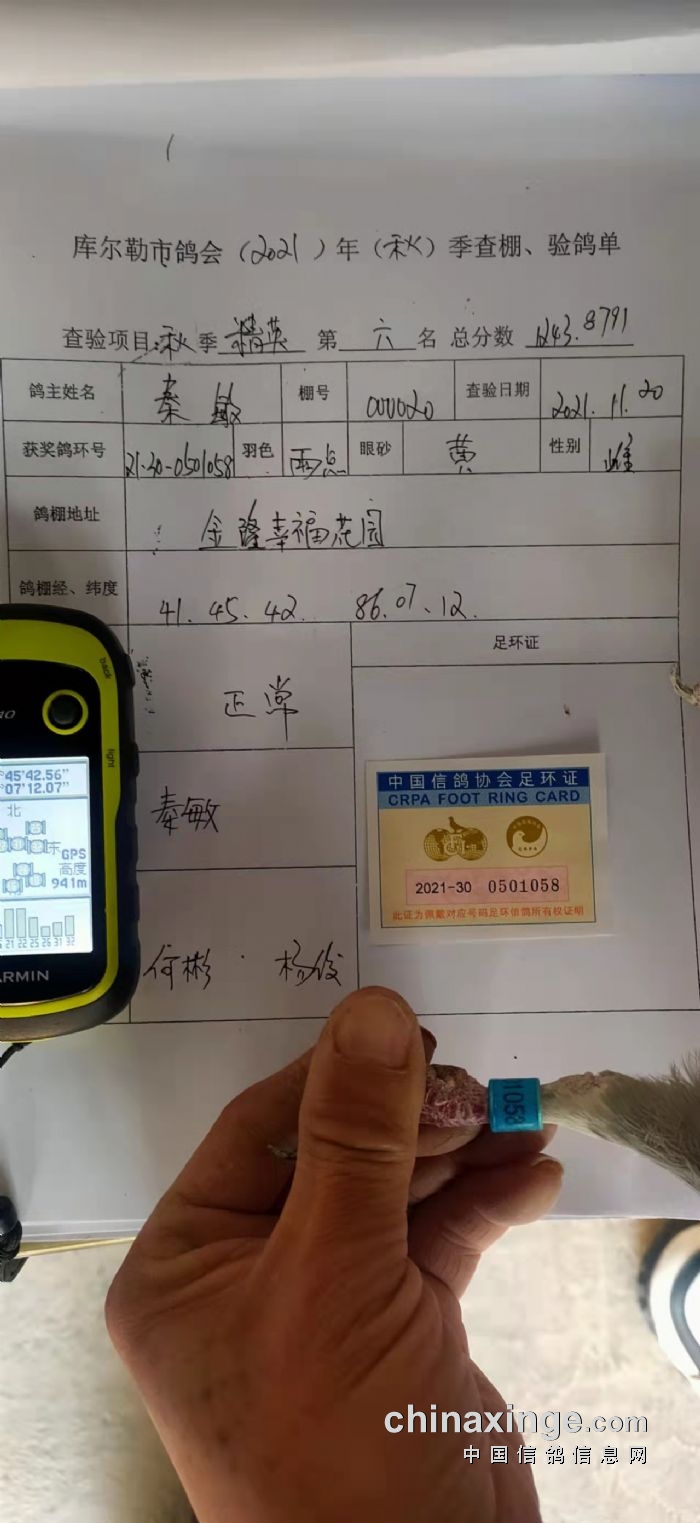 库尔勒市鸽会（2021）年（秋）季查棚、验鸽单
查验项目:秋季 精英 第 六 名 总分数 1243.8791
鸽主姓名 秦敏 棚号 000020 查验日期 2021.11.20
获奖鸽环号 21-30-0501058 羽色 雨点 眼砂 黄 性别 雌
鸽棚地址 金隆幸福花园
鸽棚经、纬度 41.45.42 86.07.12.
足环证
正常
秦敏
何彬 . 杨俊
back
light
45'42.56"
07'12.07"
北
东
GPS
高度
941m
21 22 25 26 31 32
ARMIN
中国信鸽协会足环证
CRPA FOOT RING CARD
CRPA
2021-30 0501058
此证为佩戴对应号码足环信鸽所有权证明
1058
chinaxinge.com
中国信鸽信息网